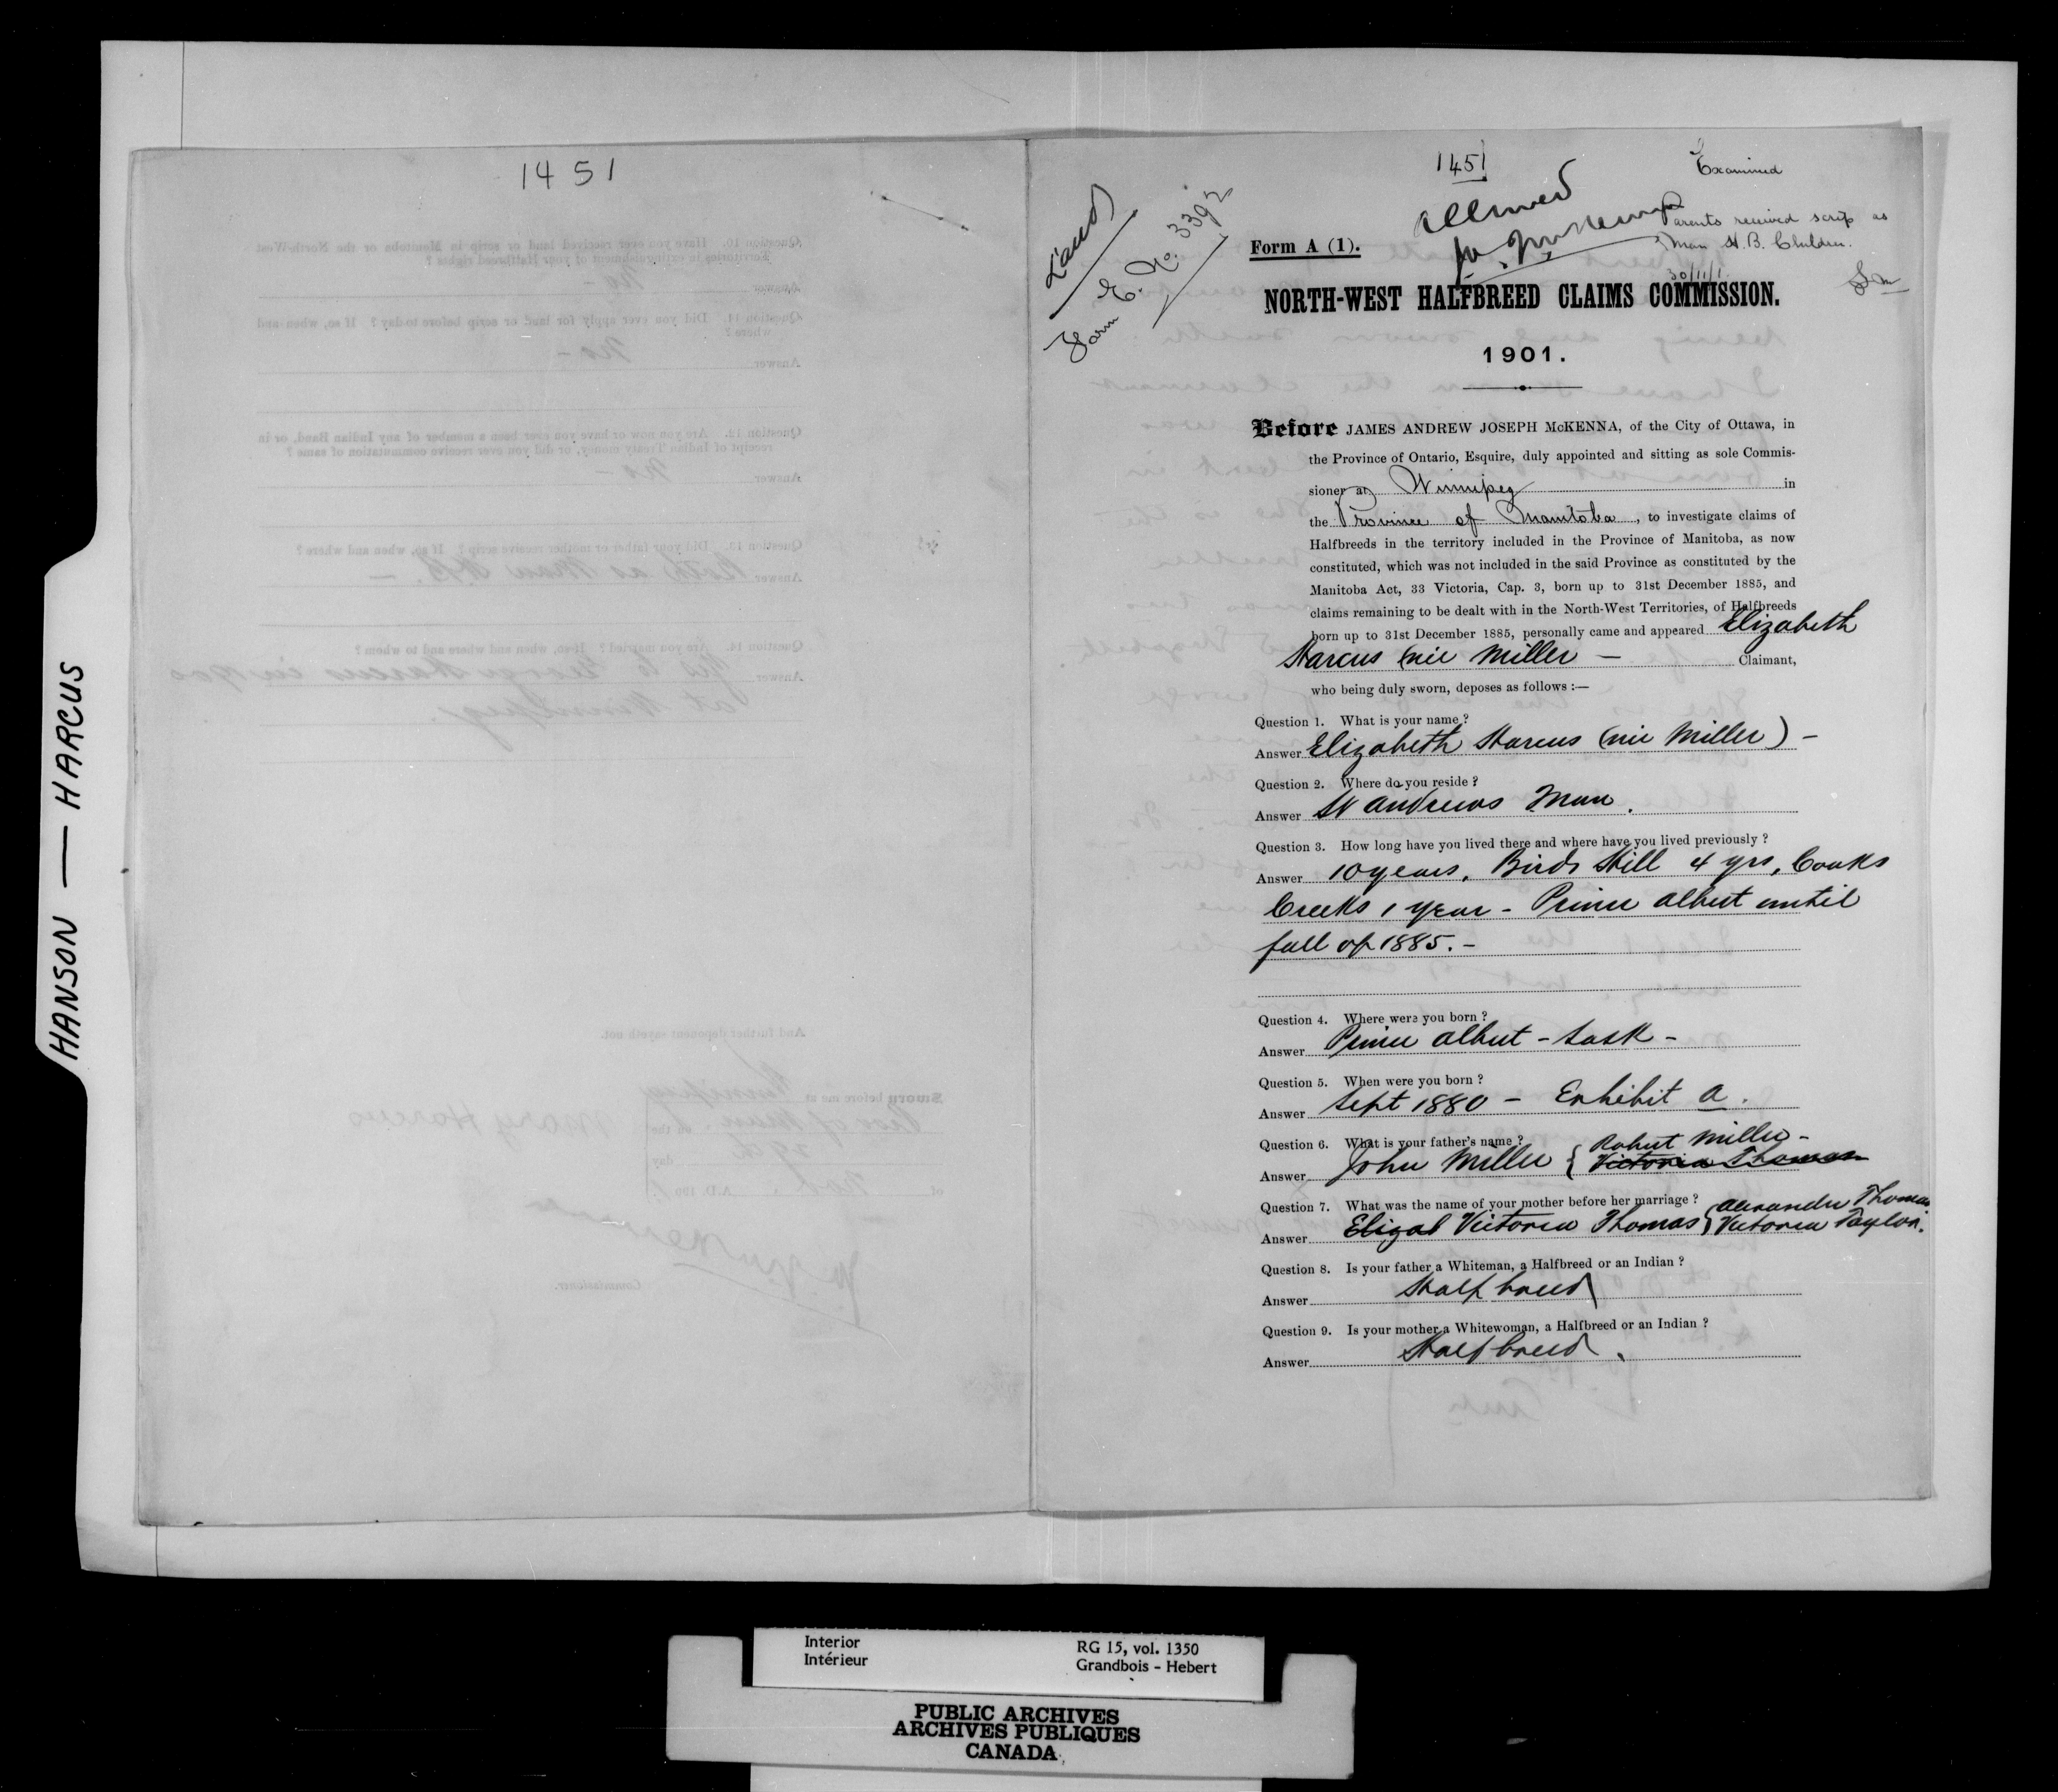 HANSON — HARCUS
1451
1451
Examined
Land
Form E. No. 3392
Allowed
Parents received scrip as
Man H.B. Children.
Form A (1).
30/11/1
NORTH-WEST HALFBREED CLAIMS COMMISSION.
1901.
Before JAMES ANDREW JOSEPH McKENNA, of the City of Ottawa, in
the Province of Ontario, Esquire, duly appointed and sitting as sole Commis-
sioner at Winnipeg in
the Province of Manitoba, to investigate claims of
Halfbreeds in the territory included in the Province of Manitoba, as now
constituted, which was not included in the said Province as constituted by the
Manitoba Act, 33 Victoria, Cap. 3, born up to 31st December 1885, and
claims remaining to be dealt with in the North-West Territories, of Halfbreeds
born up to 31st December 1885, personally came and appeared Elizabeth
Harcus (nie Miller — Claimant,
who being duly sworn, deposes as follows :—
Question 1. What is your name ?
Answer Elizabeth Harcus (nie Miller) –
Question 2. Where do you reside ?
Answer St Andrews Man.
Question 3. How long have you lived there and where have you lived previously ?
Answer 10 years. Birds Hill 4 yrs, Cooks
Creeks 1 year – Prince Albert until
fall of 1885. –
Question 4. Where were you born ?
Answer Prince Albert – Sask –
Question 5. When were you born ?
Answer Sept 1880 – Exhibit A.
Question 6. What is your father's name ?
Answer John Miller { Robert Miller – Victoria Thomas
Question 7. What was the name of your mother before her marriage ?
Answer Elizab Victoria Thomas { Alexander Thomas Victoria Taylor.
Question 8. Is your father a Whiteman, a Halfbreed or an Indian ?
Answer Halfbreed
Question 9. Is your mother a Whitewoman, a Halfbreed or an Indian ?
Answer Halfbreed.
Interior
Intérieur
RG 15, vol. 1350
Grandbois - Hebert
PUBLIC ARCHIVES
ARCHIVES PUBLIQUES
CANADA